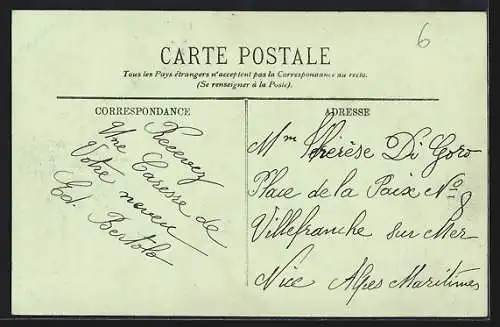 6
CARTE POSTALE
Tous les Pays étrangers n'acceptent pas la Correspondance au recto.
(Se renseigner à la Poste).
CORRESPONDANCE
Recevez
Une Caresse de
Votre neveu
Ed. Bertolo
ADRESSE
Mme Thérèse Di Goro
Place de la Paix No 8
Villefranche sur Mer
Nice Alpes Maritimes